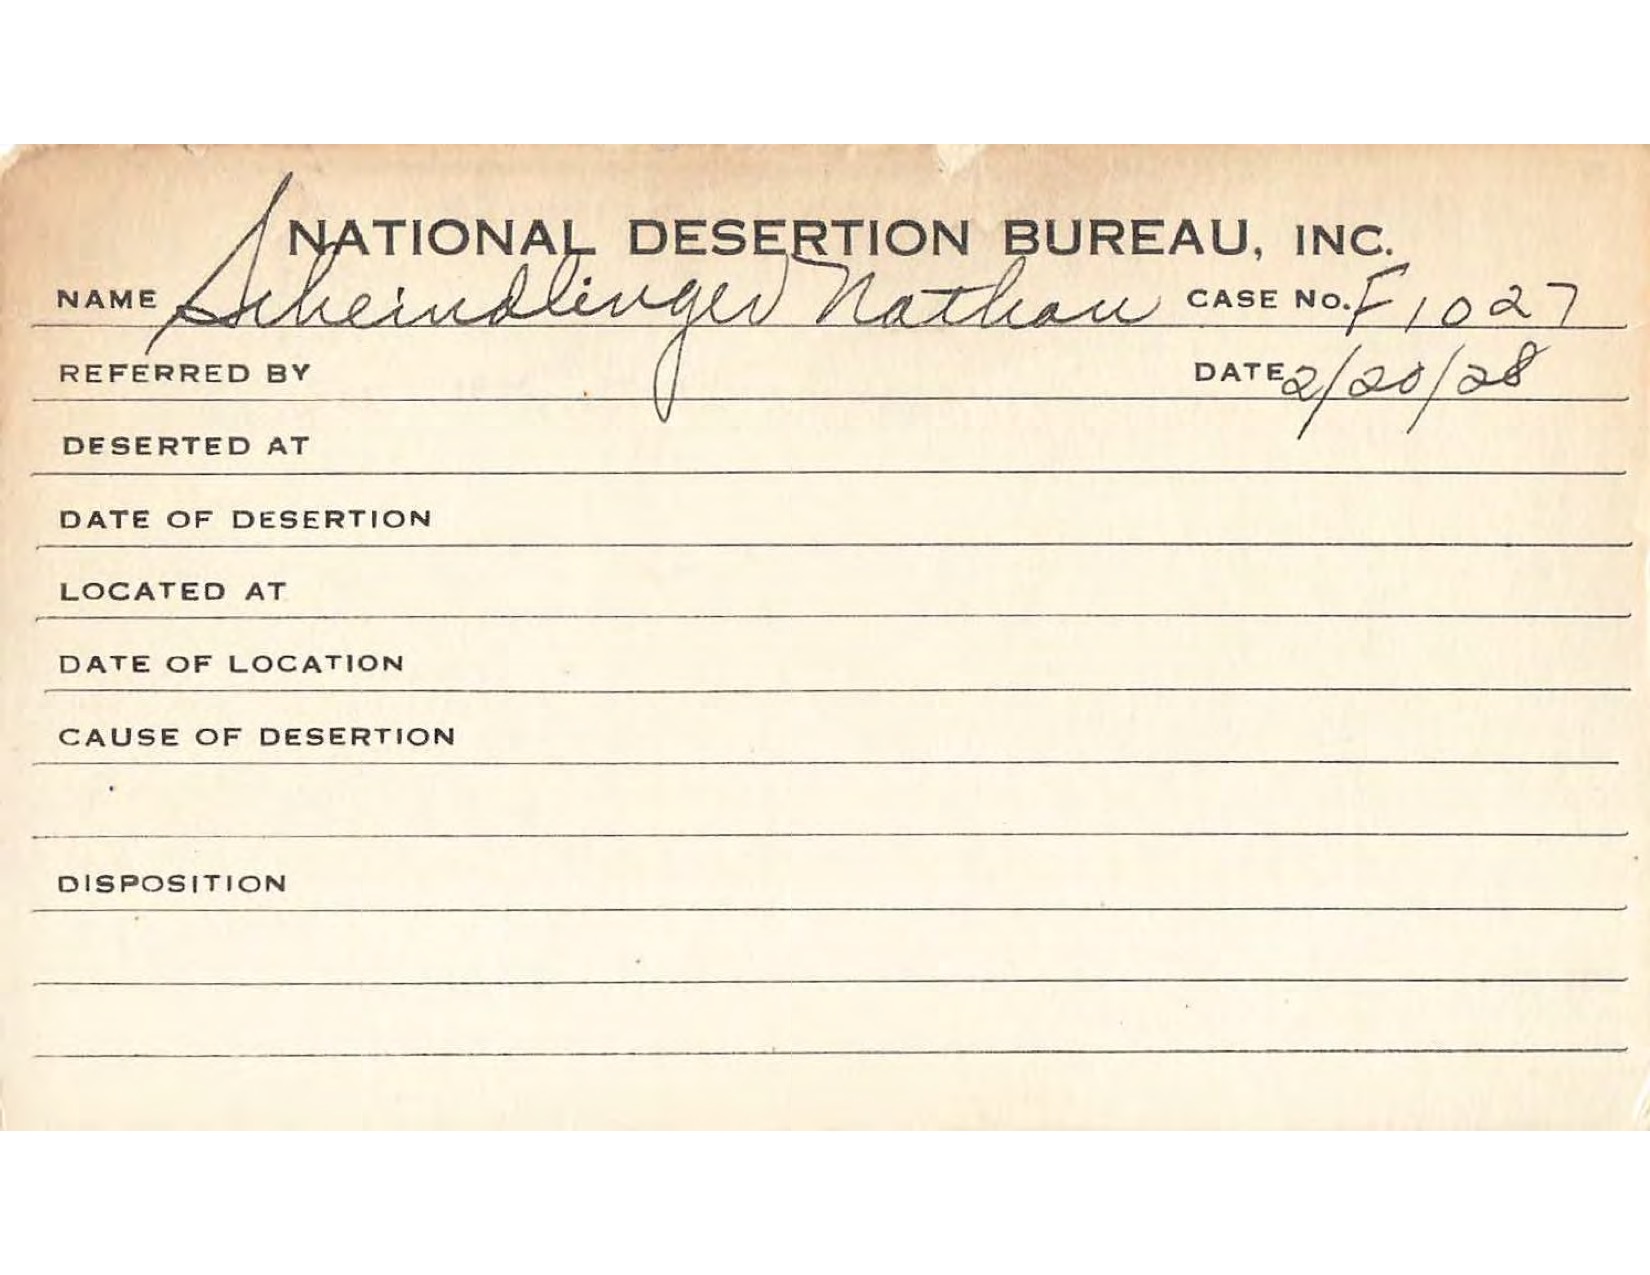 NATIONAL DESERTION BUREAU, INC.
NAME Scheindlinger Nathan CASE NO. F1027
REFERRED BY DATE 2/20/28
DESERTED AT
DATE OF DESERTION
LOCATED AT
DATE OF LOCATION
CAUSE OF DESERTION
DISPOSITION